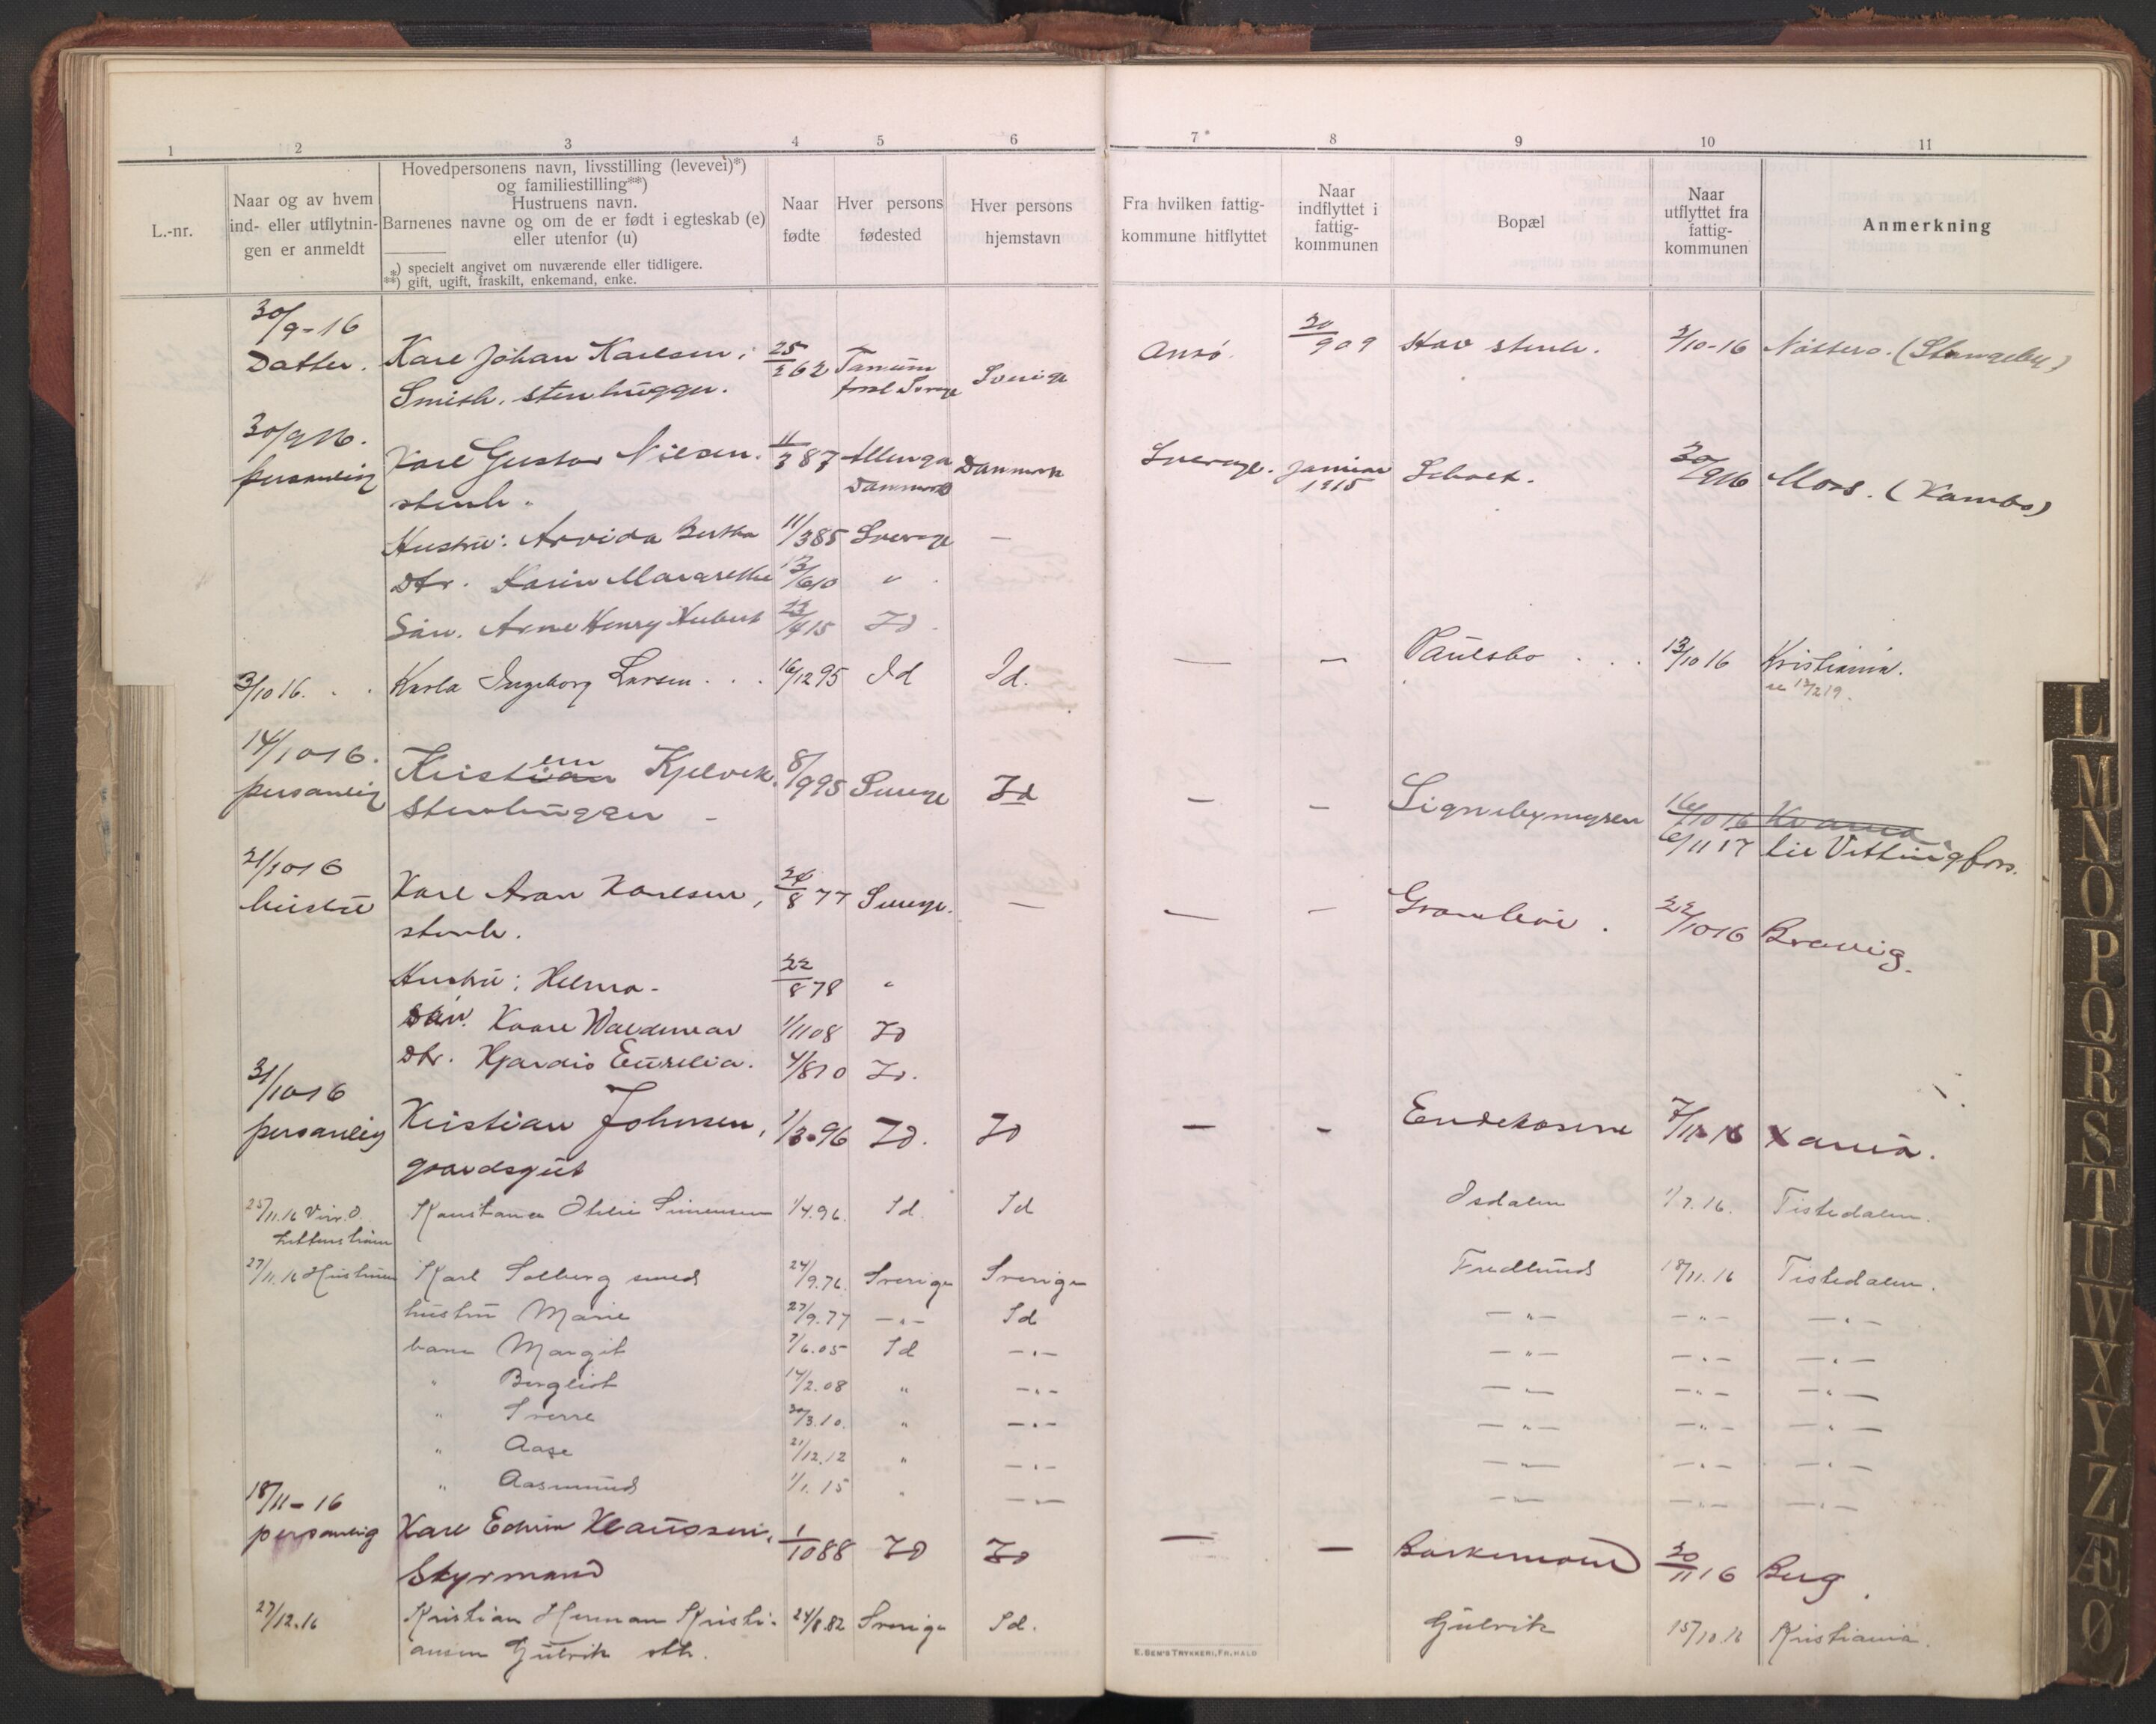 1 2 3 4 5 6 7* 8 9 10 11
L.-nr.
Naar og av hvem
ind- eller utflytnin-
gen er anmeldt
Hovedpersonens navn, livsstilling (levevei)*)
og familiestilling**)
Hustruens navn.
Barnenes navne og om de er født i egteskab (e)
eller utenfor (u)
*) specielt angivet om nuværende eller tidligere.
**) gift, ugift, fraskilt, enkemand, enke.
Naar
fødte
Hver persons
fødested
Hver persons
hjemstavn
Fra hvilken fattig-
kommune hitflyttet
Naar
indflyttet i
fattig-
kommunen
Bopæl
Naar
utflyttet fra
fattig-
kommunen
Anmerkning
30/9-16
Datter. Karl Johan Karlsen, 25/2 62 Tanum Sverige 20/9 09 Stav stenh. 2/10-16 Nøtterø. (Stangeby)
Smith. stenhugger.
30/9 16.
personlig Karl Gustav Nilsen. 11/3 87 Danmark Danmark Sverige. Januar 1915 30/9 16 Moss. (Kambo)
stenh.
Hustru: Arvida Bertha 11/3 85 Sverige —
Dtr. Karin Margrethe 13/6 10 "
Søn. Arne Henry Hubert 23/4 15 Id.
3/10 16. Karla Ingeborg Larsen 16/12 95 Id Id. — — Paulsbo 13/10 16 Kristiania.
14/10 16.
personlig Kristian en Kjelvik. 8/9 95 Sverige Id — — Signebymyren 16/10 16 Kr ania
Stenhugger 6/11 17 til Vittingfoss.
21/10 16
hustru Karl Aron Karlsen, 24/8 77 Sverige. — — — Gramlein. 22/10 16 Brevig.
stenh.
Hustru: Helma 22/8 78 "
Søn. Kaare Waldemar 1/11 08 Id
Dtr. Hjørdis Eurelia. 4/8 10 Id.
31/10 16
personlig Kristian Johnsen, 1/3 96 Id. Id — — 7/11 16 X ania.
gaardsgut
25/11.16 Konstance Othilie Simensen 1/4.96. Id. Id Isdalen 1/7.16. Tistedalen.
27/11.16 Hustruen Karl Solberg smed 24/9.76. Sverige Sverige Fredlund 18/11.16 Tistedalen.
hustru Marie 27/9.77 —"— Id —"— —"— —"—
barn Margit 7/6.05 Id —"— —"— —"— —"—
" Bergliot 14/2.08 " —"— —"— —"— —"—
" Sverre 30/3.10. " —"— —"— —"— —"—
" Aase 21/12.12 " —"— —"— —"— —"—
" Aasmund 1/1.15 " —"— —"— —"— —"—
18/11-16
personlig Karl Edvin Klaussen, 1/10 88 Id Id — — 20/11 16 Berg.
Styrmand
27/12.16 Kristian Herman Kristi- 24/8.82 Sverige Id. Gjulvik 15/10.16 Kristiania.
ansen Gjulvik sth.
E. SEM'S TRYKKERI, FR.HALD
L
M
N
O
P
Q
R
S
T
U
W
X
Y
Z
Æ
Ø